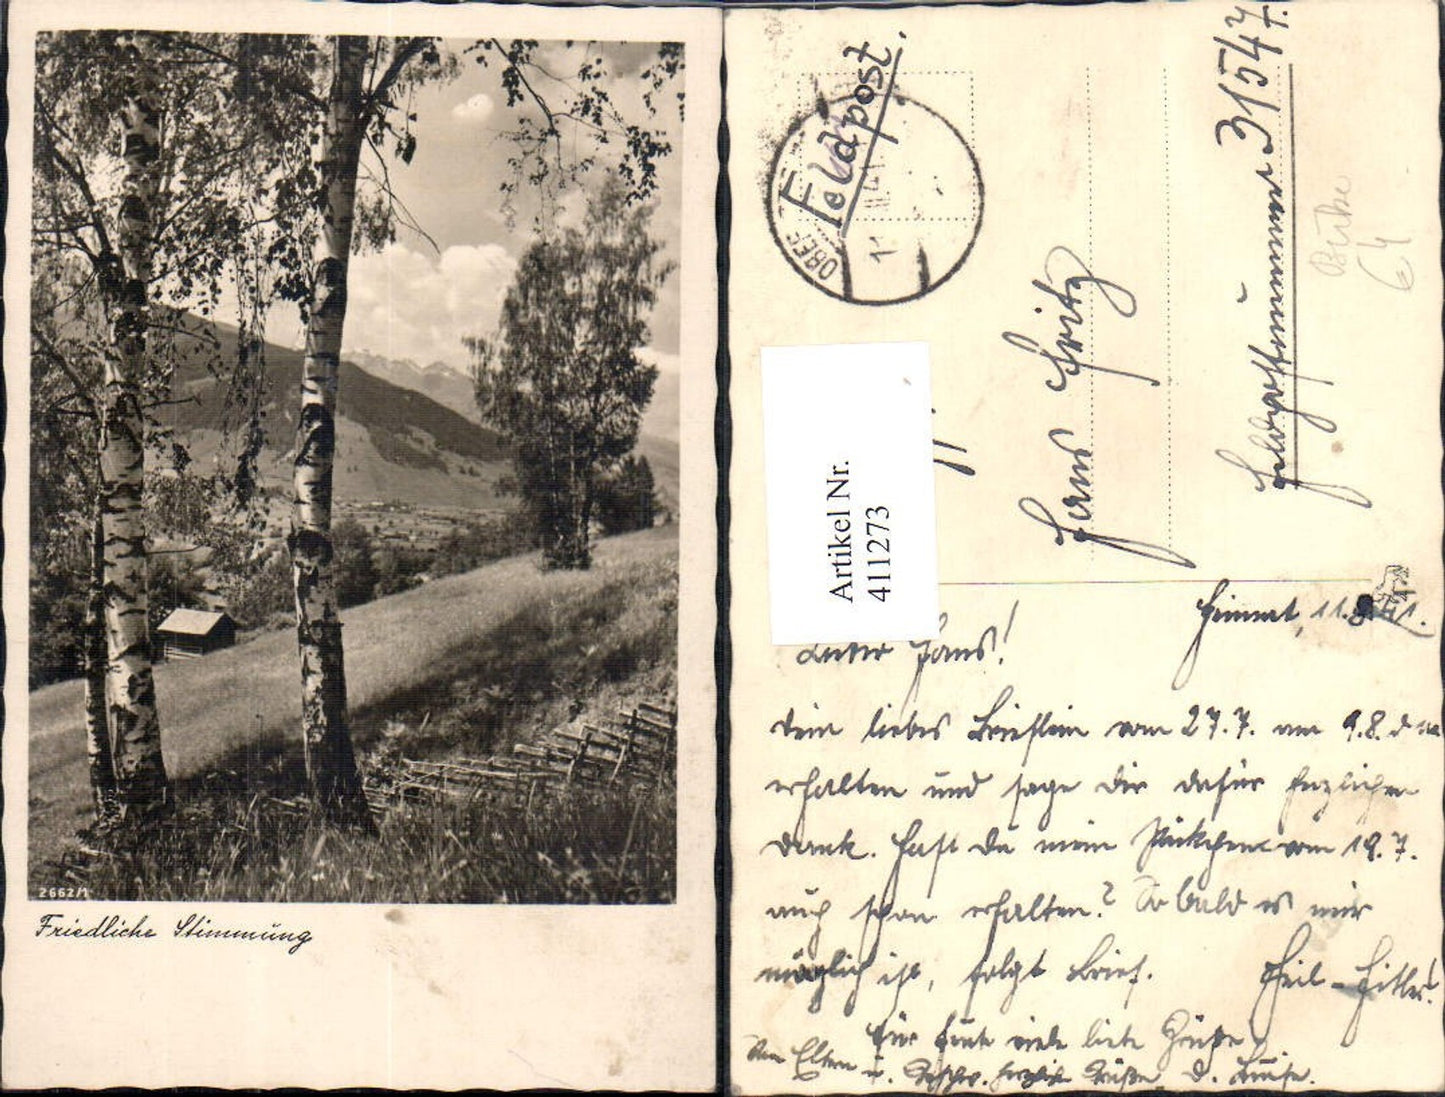 2662/1
Friedliche Stimmung
Feldpost.
OBER
11
Artikel Nr.
4111273
Hans Fritz
Feldpostnummer 31547
T.
Birke
64
Heimat, 11.8.41.
Lieber Hans!
Dein liebes Brieflein vom 27.7. am 9.8.
erhalten und sage Dir dafür herzlichen
Dank. Hast Du mein Päckchen vom 19.7.
auch schon erhalten? So bald es mir
möglich ist, folgt Brief. Heil-Hitler!
Für heute viele liebe Grüße
Von Eltern u. Geschw. herzliche Grüße d. Luise.